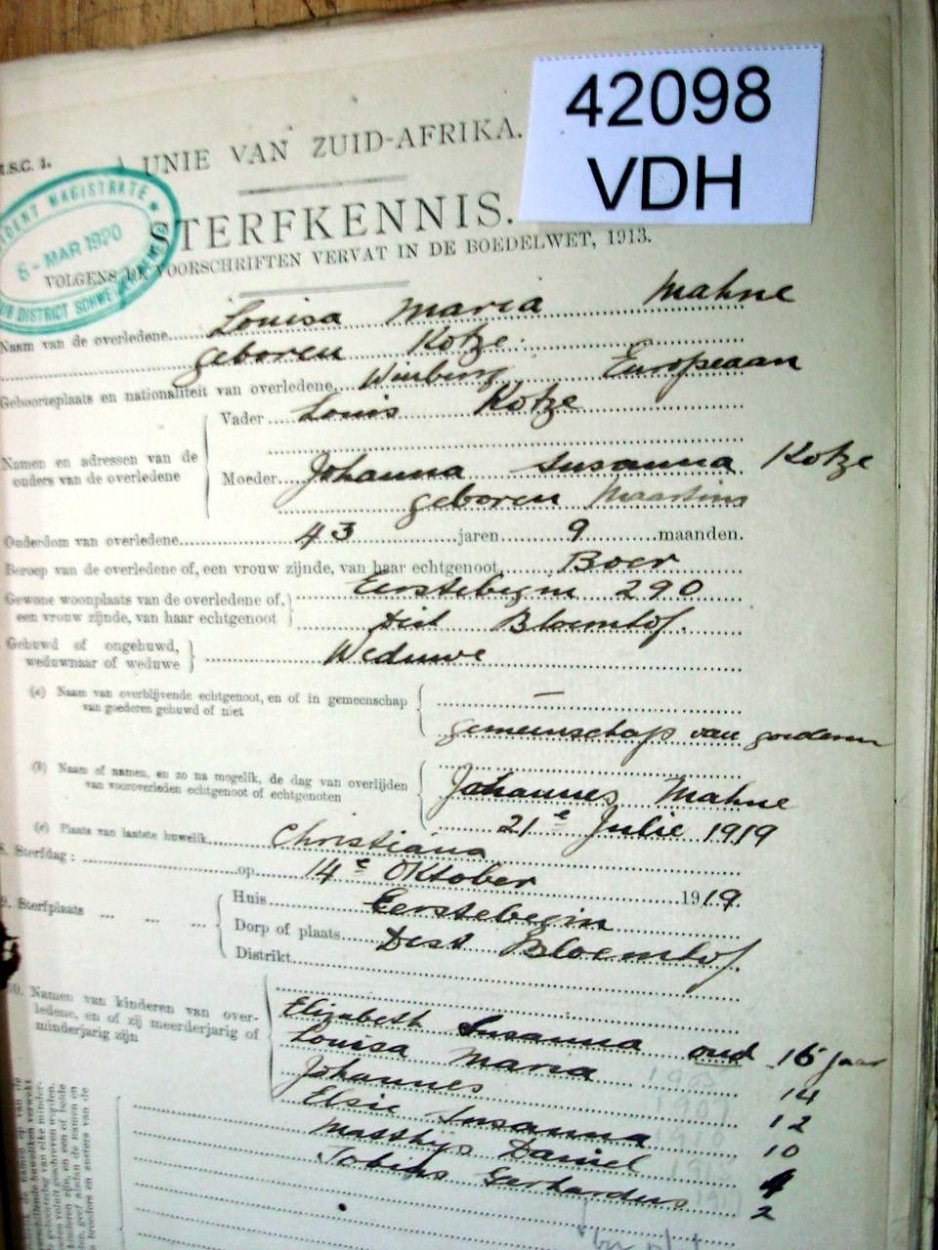 42098
VDH
UNIE VAN ZUID-AFRIKA.
STERFKENNIS.
VOLGENS DE VOORSCHRIFTEN VERVAT IN DE BOEDELWET, 1913.
MAGISTRATE
6 - MAR 1920
DISTRICT
Naam van de overledene Louisa Maria Mahne
geboren Kotze.
Geboorteplaats en nationaliteit van overledene Winburg Europeaan
Namen en adressen van de ouders van de overledene
Vader Louis Kotze
Moeder Johanna Susanna Kotze
geboren Maartins
Ouderdom van overledene 43 jaren 9 maanden.
Beroep van de overledene of, een vrouw zijnde, van haar echtgenoot Boer
Gewone woonplaats van de overledene of, Eerstebegin 290
een vrouw zijnde, van haar echtgenoot Dist Bloemhof.
Gehuwd of ongehuwd,
weduwnaar of weduwe Weduwe
(a) Naam van overblijvende echtgenoot, en of in gemeenschap —
van goederen gehuwd of niet gemeenschap van goederen
(b) Naam of namen, en zo na mogelik, de dag van overlijden Johannes Mahne
van vooroverleden echtgenoot of echtgenoten 21e Julie 1919
(c) Plaats van laatste huwelik Christiana
8. Sterfdag: op 14e Oktober 1919.
9. Sterfplaats
Huis Eerstebegin
Dorp of plaats Dist Bloemhof.
Distrikt
10. Namen van kinderen van over-
ledene, en of zij meerderjarig of
minderjarig zijn
Elizabeth Susanna oud 16 jaar
Louisa Maria 14
Johannes 12
Elsie Susanna 10
Matthijs Daniel 4
Tobias Gerhardus 2